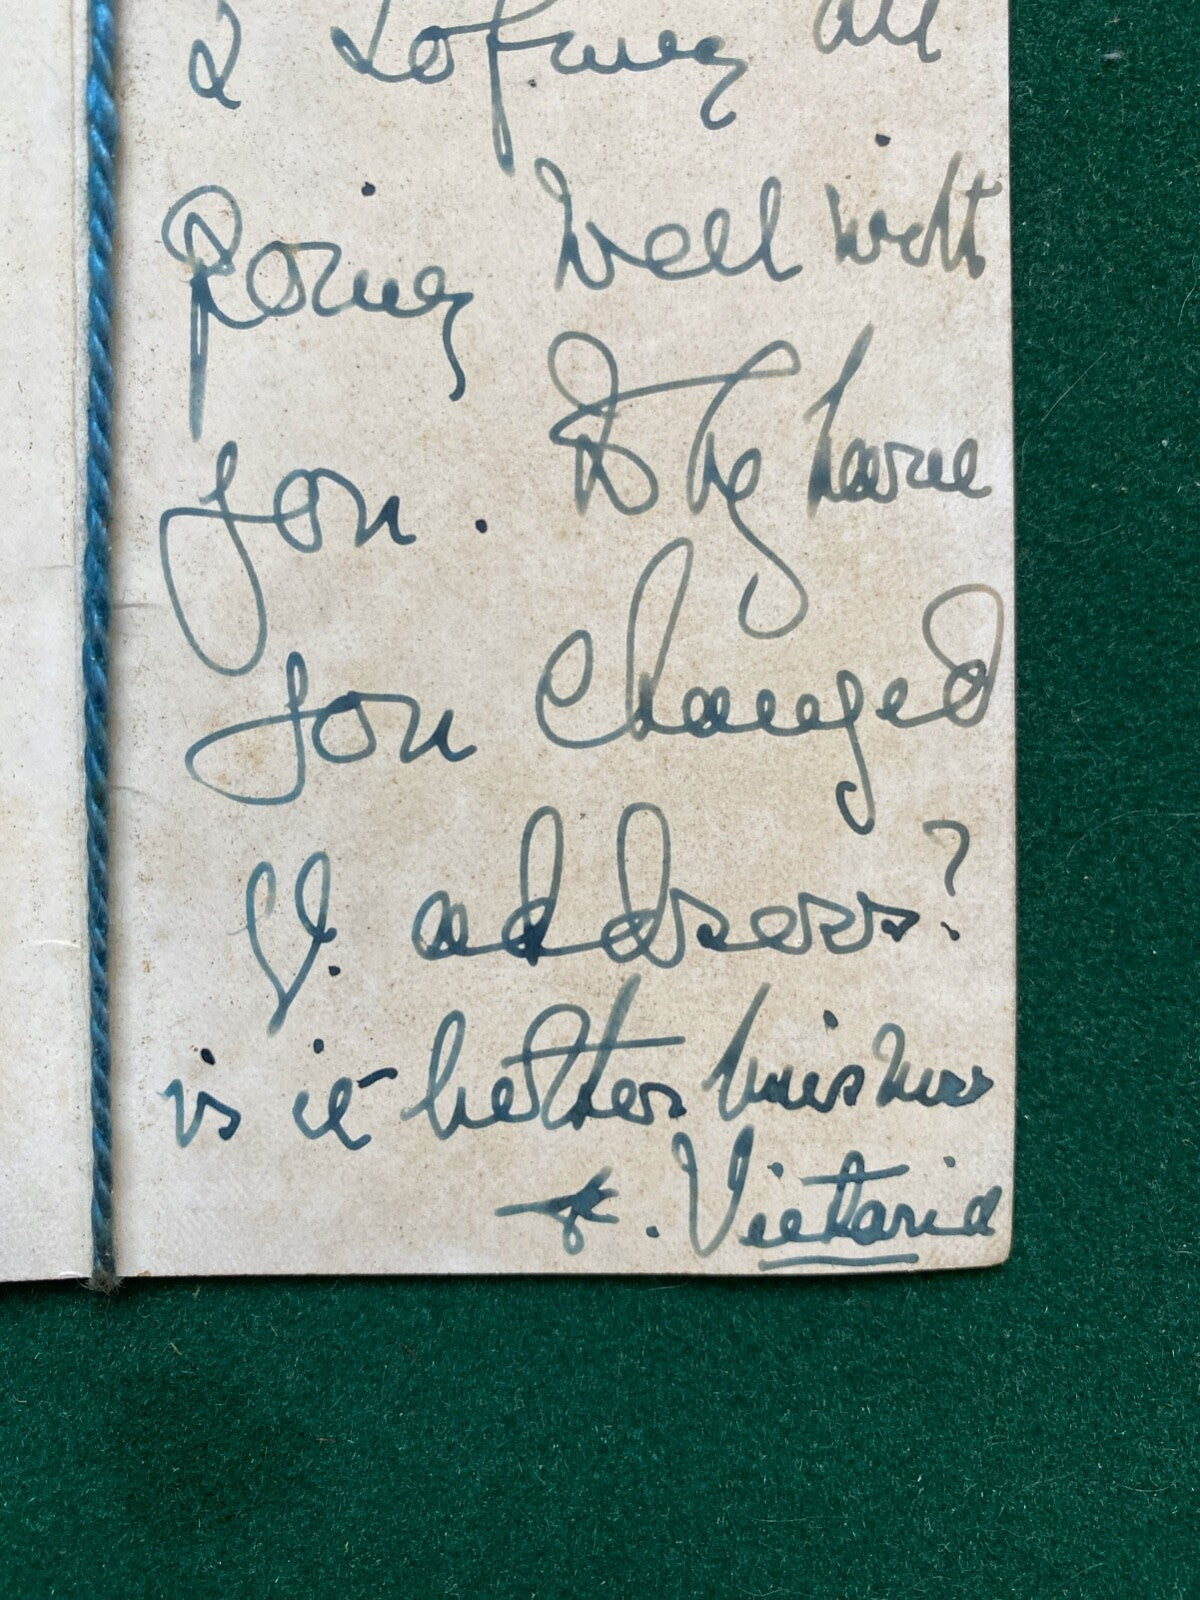 I hope all
Going well with
you. Why have
you changed
Yr. address?
is it better business
f. Victoria